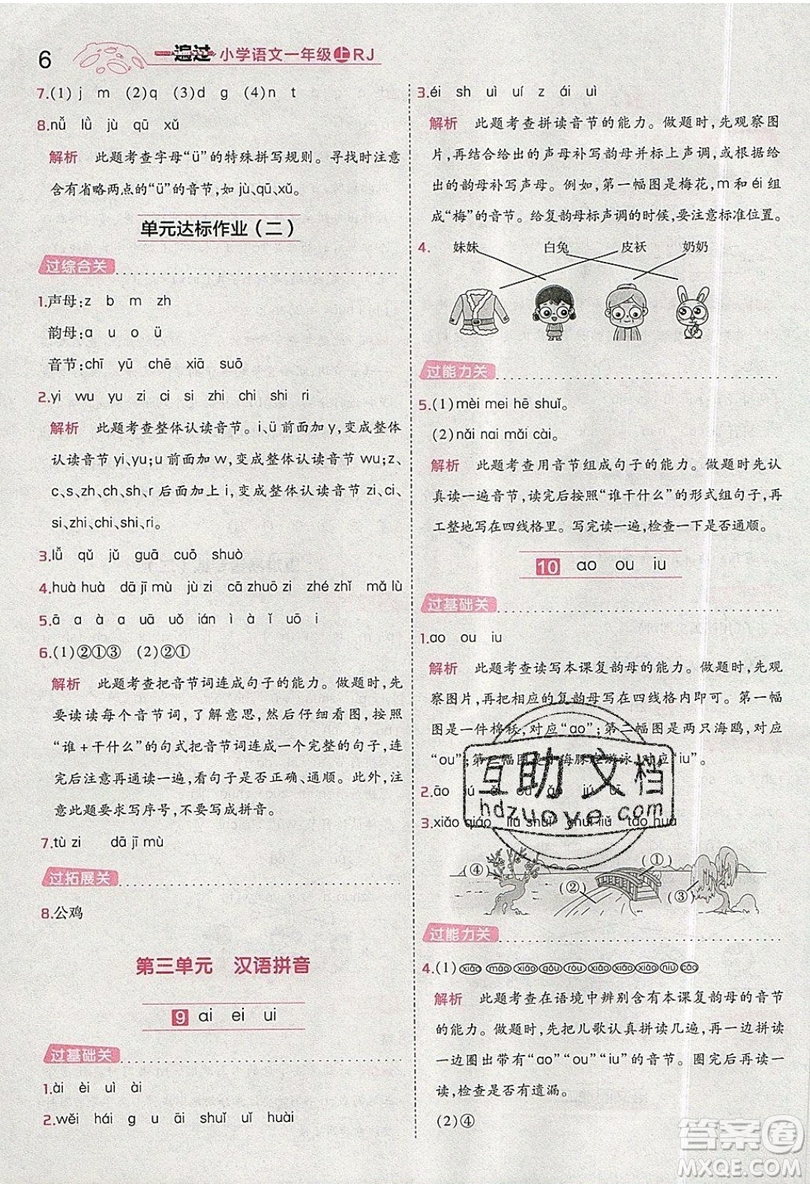 6
一遍过 小学语文一年级上RJ
7.(1)j (2)q (3)x (4)n t
8.nǚ lǜ jù qū xǔ
解析 此题考查字母“ü”的特殊拼写规则。寻找时注意
含有省略两点的“ü”的音节,如jù、qū、xǔ。
单元达标作业(二)
过综合关
1.声母:z b m zh
韵母:a u o ü
音节:chī yǔ chē xiā suō
2.yi wu yu zi ci si zhi chi shi ri
解析 此题考查整体认读音节。i、ü前面加y,变成整体
认读音节yi、yu;u前面加w,变成整体认读音节wu;z、
c、s、zh、ch、sh、r后面加i,变成整体认读音节zi、ci、
si、zhi、chi、shi、ri。
3.lǘ qǔ jǔ guā cuō shuò
4.huà huà dā jī mù jù zi cā zhuō zi zhé zhǐ mǎ lù
5.ā á à ā uǎ uǒ ián ì ǐ uō i
6.(1)②①③ (2)②①
解析 此题考查把音节词连成句子的能力。做题时,先
读读每个音节词,了解意思,然后仔细看图,按照
“谁+干什么”的句式把音节连成一个完整的句子,
连好后再通读一遍,看句子是否正确、通顺。此外,注
意此题要求写序号,不要写成拼音。
7.tù zi dā jī mù
过拓展关
8.公鸡
第三单元 汉语拼音
9 ai ei ui
过基础关
1.ài èi uì ài
2.wěi hái g u āi shuǐ uǐ huài
3.éi sh uì uí z ái uì
解析 此题考查拼读音节的能力。做题时,先观察图
片,再结合给出的声母补写韵母并标上声调,或者根
据给出的韵母补写声母。例如,第一幅图是梅花,m和éi组
成“梅”的音节。给复韵母标声调的时候,一定要注意位置。
4. 妹妹 白兔 皮袄 奶奶
过能力关
5.(1)mèi mei hē shuǐ。
(2)nǎi nai mǎi cài。
解析 此题考查用音节组成句子的能力。做题时,先认
真读一遍音节,读完后按照“谁干什么”的形式组句子,再
工整地写在四线格里。写完读一遍,检查一下是否通顺。
10 ao ou iu
过基础关
1.ao ou iu
解析 此题考查读写本课复韵母的能力。做题时,先观
察图片,再把相应的复韵母写在四线格内即可。第一幅
图是一件棉袄,对应“ao”;第二幅图是两只海鸥,对应
“ou”;第三幅图是海豚在游泳,对应“iu”。
3.xiǎo qiáo liǔ shuǐ shuǐ liú táo huā
④ ① ② ③
过能力关
4.(1)
解析 此题考查在语境中辨别含有本课复韵母的音节
的能力。做题时,先把儿歌认真拼读几遍,再一边读
一边圈出带有“ao”“ou”“iu”的音节。圈完后再读一
读,检查是否有遗漏。
(2)④
互助文档
hdzuoye.com
答案圈
MXQE.COM